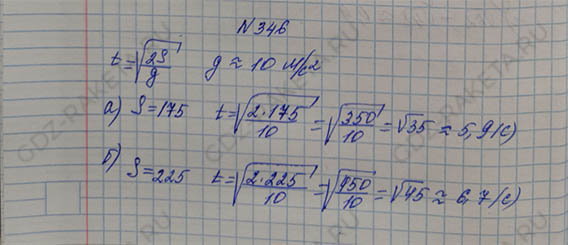 N 346
t = √(2S/g)  g ≈ 10 м/с2
а) S = 175  t = √(2·175/10) = √(350/10) = √35 ≈ 5,9 (с)
б) S = 225  t = √(2·225/10) = √(450/10) = √45 ≈ 6,7 (с)
GDZ-RAKETA.RU